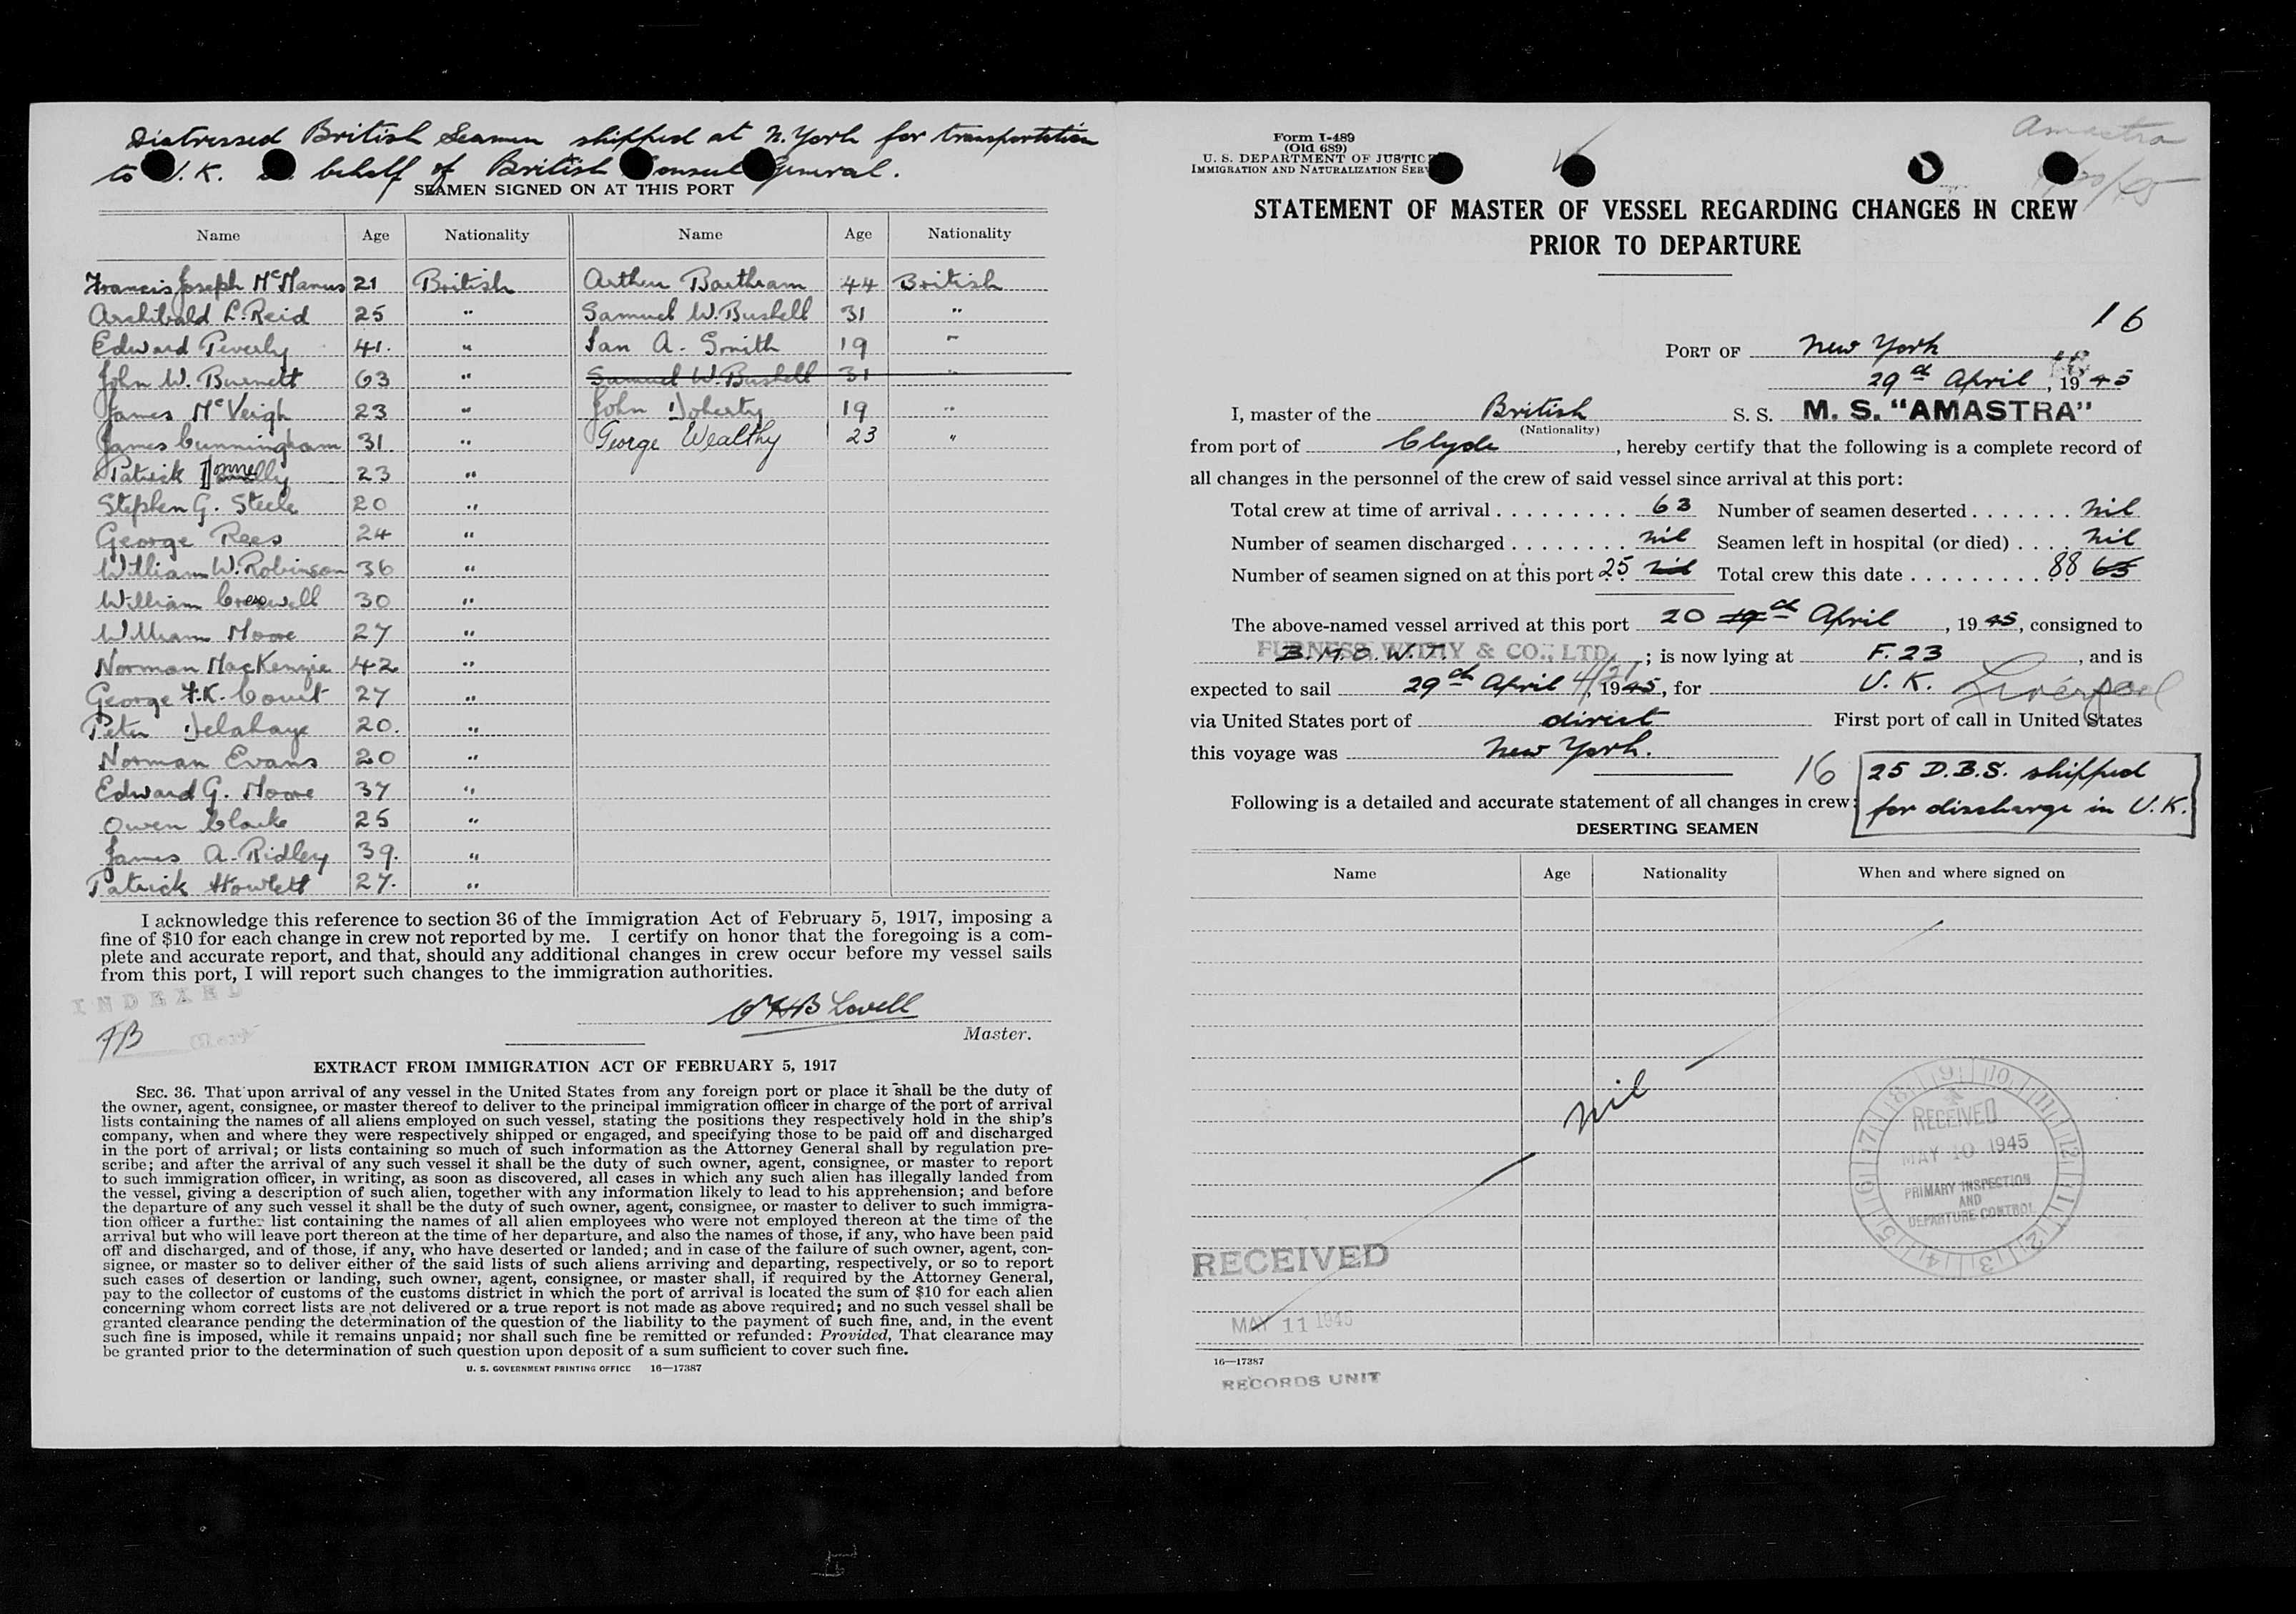 Distressed British Seamen shipped at N. York for transportation
to U.K. behalf of British Consul General.
SEAMEN SIGNED ON AT THIS PORT
Name Age Nationality Name Age Nationality
Francis Joseph McManus 21 British Arthur Bartham 44 British
Archibald L. Reid 25 " Samuel W. Bushell 31 "
Edward Peverly 41. " Ian A. Smith 19 "
John W. Burnett 63 " Samuel W. Bushell 31 "
James McVeigh 23 " John Doherty 19 "
James Cunningham 31 " George Wealthy 23 "
Patrick Donnelly 23 "
Stephen G. Steele 20 "
George Rees 24 "
William W. Robinson 36 "
William Creswell 30 "
William Moore 27 "
Norman MacKenzie 42 "
George F.K. Court 27 "
Peter Delahaye 20. "
Norman Evans 20 "
Edward G. Moore 37 "
Owen Clarke 25 "
James A. Ridley 39. "
Patrick Howlett 27. "
I acknowledge this reference to section 36 of the Immigration Act of February 5, 1917, imposing a
fine of $10 for each change in crew not reported by me. I certify on honor that the foregoing is a com-
plete and accurate report, and that, should any additional changes in crew occur before my vessel sails
from this port, I will report such changes to the immigration authorities.
INDEXED
Lovell
FB
Master.
EXTRACT FROM IMMIGRATION ACT OF FEBRUARY 5, 1917
SEC. 36. That upon arrival of any vessel in the United States from any foreign port or place it shall be the duty of
the owner, agent, consignee, or master thereof to deliver to the principal immigration officer in charge of the port of arrival
lists containing the names of all aliens employed on such vessel, stating the positions they respectively hold in the ship's
company, when and where they were respectively shipped or engaged, and specifying those to be paid off and discharged
in the port of arrival; or lists containing so much of such information as the Attorney General shall by regulation pre-
scribe; and after the arrival of any such vessel it shall be the duty of such owner, agent, consignee, or master to report
to such immigration officer, in writing, as soon as discovered, all cases in which any such alien has illegally landed from
the vessel, giving a description of such alien, together with any information likely to lead to his apprehension; and before
the departure of any such vessel it shall be the duty of such owner, agent, consignee, or master to deliver to such immigra-
tion officer a further list containing the names of all alien employees who were not employed thereon at the time of the
arrival but who will leave port thereon at the time of her departure, and also the names of those, if any, who have been paid
off and discharged, and of those, if any, who have deserted or landed; and in case of the failure of such owner, agent, con-
signee, or master so to deliver either of the said lists of such aliens arriving and departing, respectively, or so to report
such cases of desertion or landing, such owner, agent, consignee, or master shall, if required by the Attorney General,
pay to the collector of customs of the customs district in which the port of arrival is located the sum of $10 for each alien
concerning whom correct lists are not delivered or a true report is not made as above required; and no such vessel shall be
granted clearance pending the determination of the question of the liability to the payment of such fine, and, in the event
such fine is imposed, while it remains unpaid; nor shall such fine be remitted or refunded: Provided, That clearance may
be granted prior to the determination of such question upon deposit of a sum sufficient to cover such fine.
U. S. GOVERNMENT PRINTING OFFICE 16—17387
Form I-489
(Old 689)
U. S. DEPARTMENT OF JUSTIC
IMMIGRATION AND NATURALIZATION SER
Amastra
STATEMENT OF MASTER OF VESSEL REGARDING CHANGES IN CREW
PRIOR TO DEPARTURE
16
PORT OF New York
29th April, 1945
I, master of the British S. S. M. S. "AMASTRA"
(Nationality)
from port of Clyde, hereby certify that the following is a complete record of
all changes in the personnel of the crew of said vessel since arrival at this port:
Total crew at time of arrival 63 Number of seamen deserted nil
Number of seamen discharged nil Seamen left in hospital (or died) nil
Number of seamen signed on at this port 25 nil Total crew this date 88 63
The above-named vessel arrived at this port 20 19th April, 1945, consigned to
FURNESS, WITHY & CO., LTD.
B.M.O.W.T. ; is now lying at F. 23, and is
expected to sail 29th April, 1945, for U.K. Liverpool
via United States port of direct First port of call in United States
this voyage was New York.
16 25 D.B.S. shipped
for discharge in U.K.
Following is a detailed and accurate statement of all changes in crew:
DESERTING SEAMEN
Name Age Nationality When and where signed on
nil
9 10 11 12 1 2 3 4 5 6 7 8
RECEIVED
MAY 10 1945
PRIMARY INSPECTION
AND
DEPARTURE CONTROL
RECEIVED
MAY 11 1945
16—17387
RECORDS UNIT